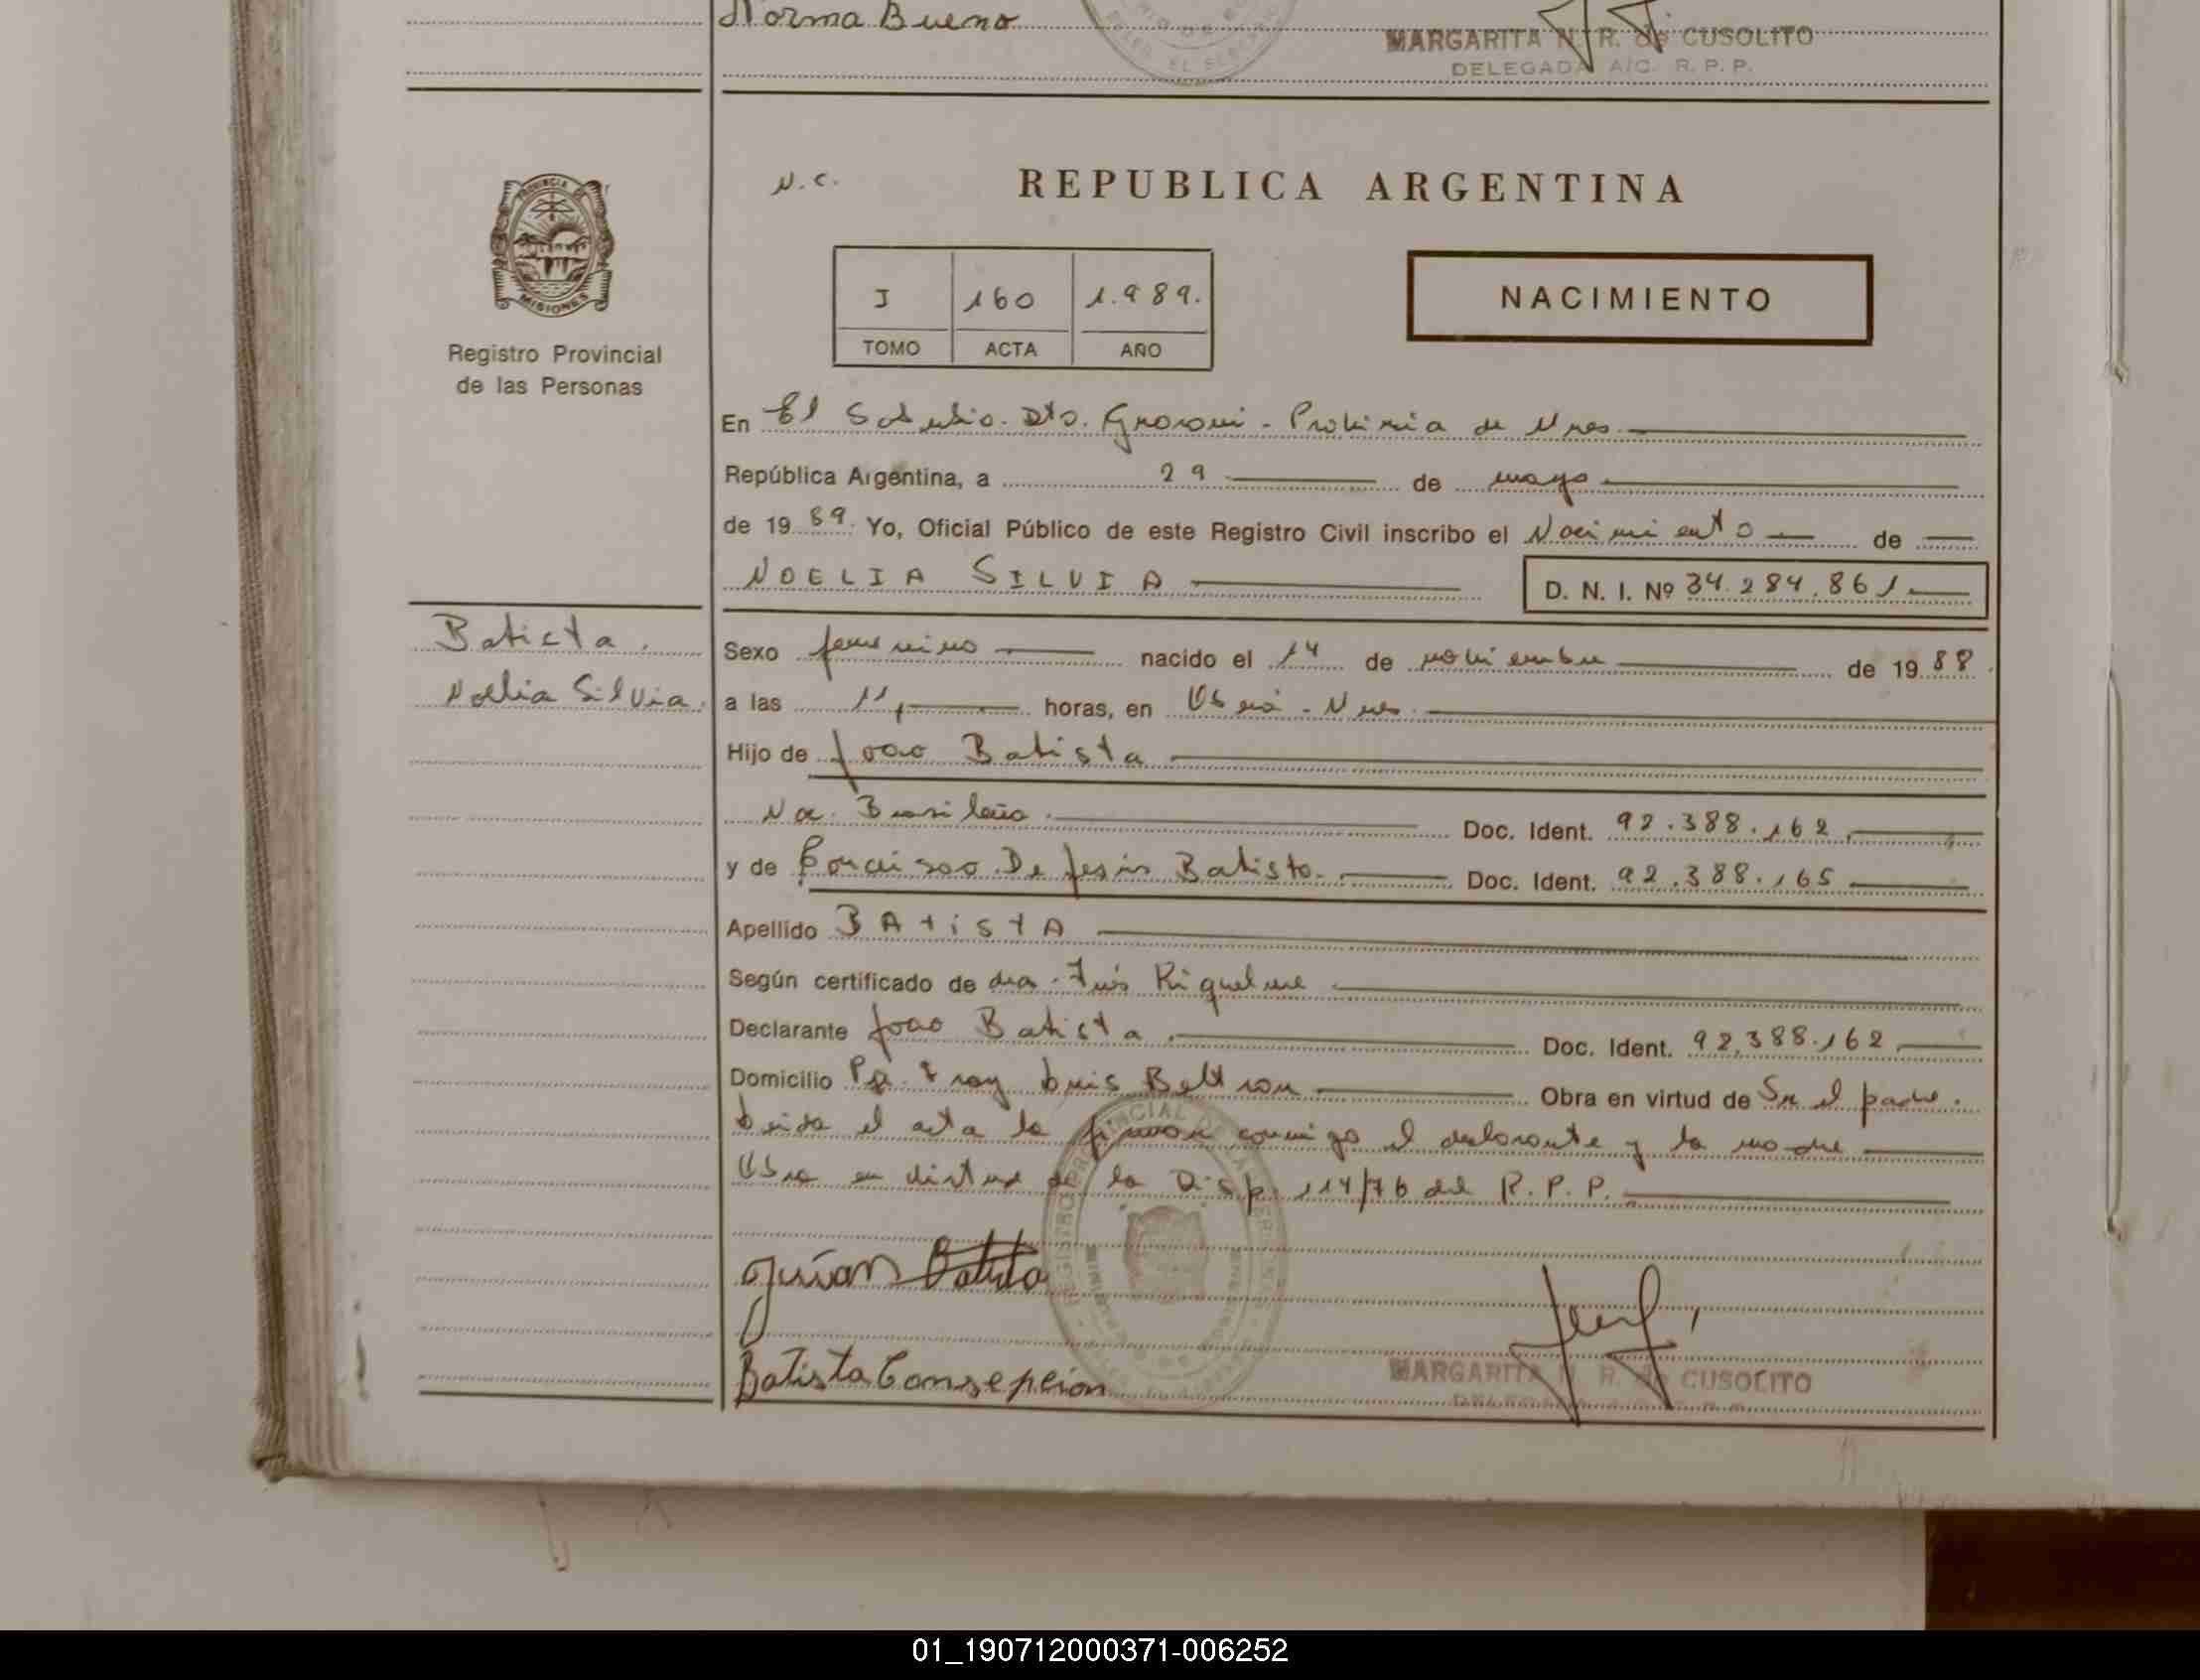 Norma Bueno
MARGARITA N. R. de CUSOLITO
DELEGADA A/C. R. P. P.
N.C.
REPUBLICA ARGENTINA
PROVINCIA DE
MISIONES
Registro Provincial
de las Personas
I 160 1.989.
TOMO ACTA AÑO
NACIMIENTO
En El Soberbio. Dto. Guaraní - Provincia de Mnes.
República Argentina, a 29 de mayo
de 19 89. Yo, Oficial Público de este Registro Civil inscribo el Nacimiento de
NOELIA SILVIA
D. N. I. Nº 34.284.861
Baticta.
Noelia Silvia.
Sexo femenino nacido el 14 de noviembre de 19 88
a las 11 horas, en Oberá - Mnes.
Hijo de Joao Batista
Na. Brasileño Doc. Ident. 92.388.162
y de De Jesús Batista. Doc. Ident. 92.388.165
Apellido BAtistA
Según certificado de Riquelme
Declarante Joao Batista. Doc. Ident. 92.388.162
Domicilio Pje. Fray Luis Beltran Obra en virtud de Ser el padre.
Leida el acta la firman conmigo el declarante y la madre
Obra en virtud de la Disp. 114/76 del R. P. P.
Batista
Batista Consepcion
MARGARITA N. R. de CUSOLITO
01_190712000371-006252